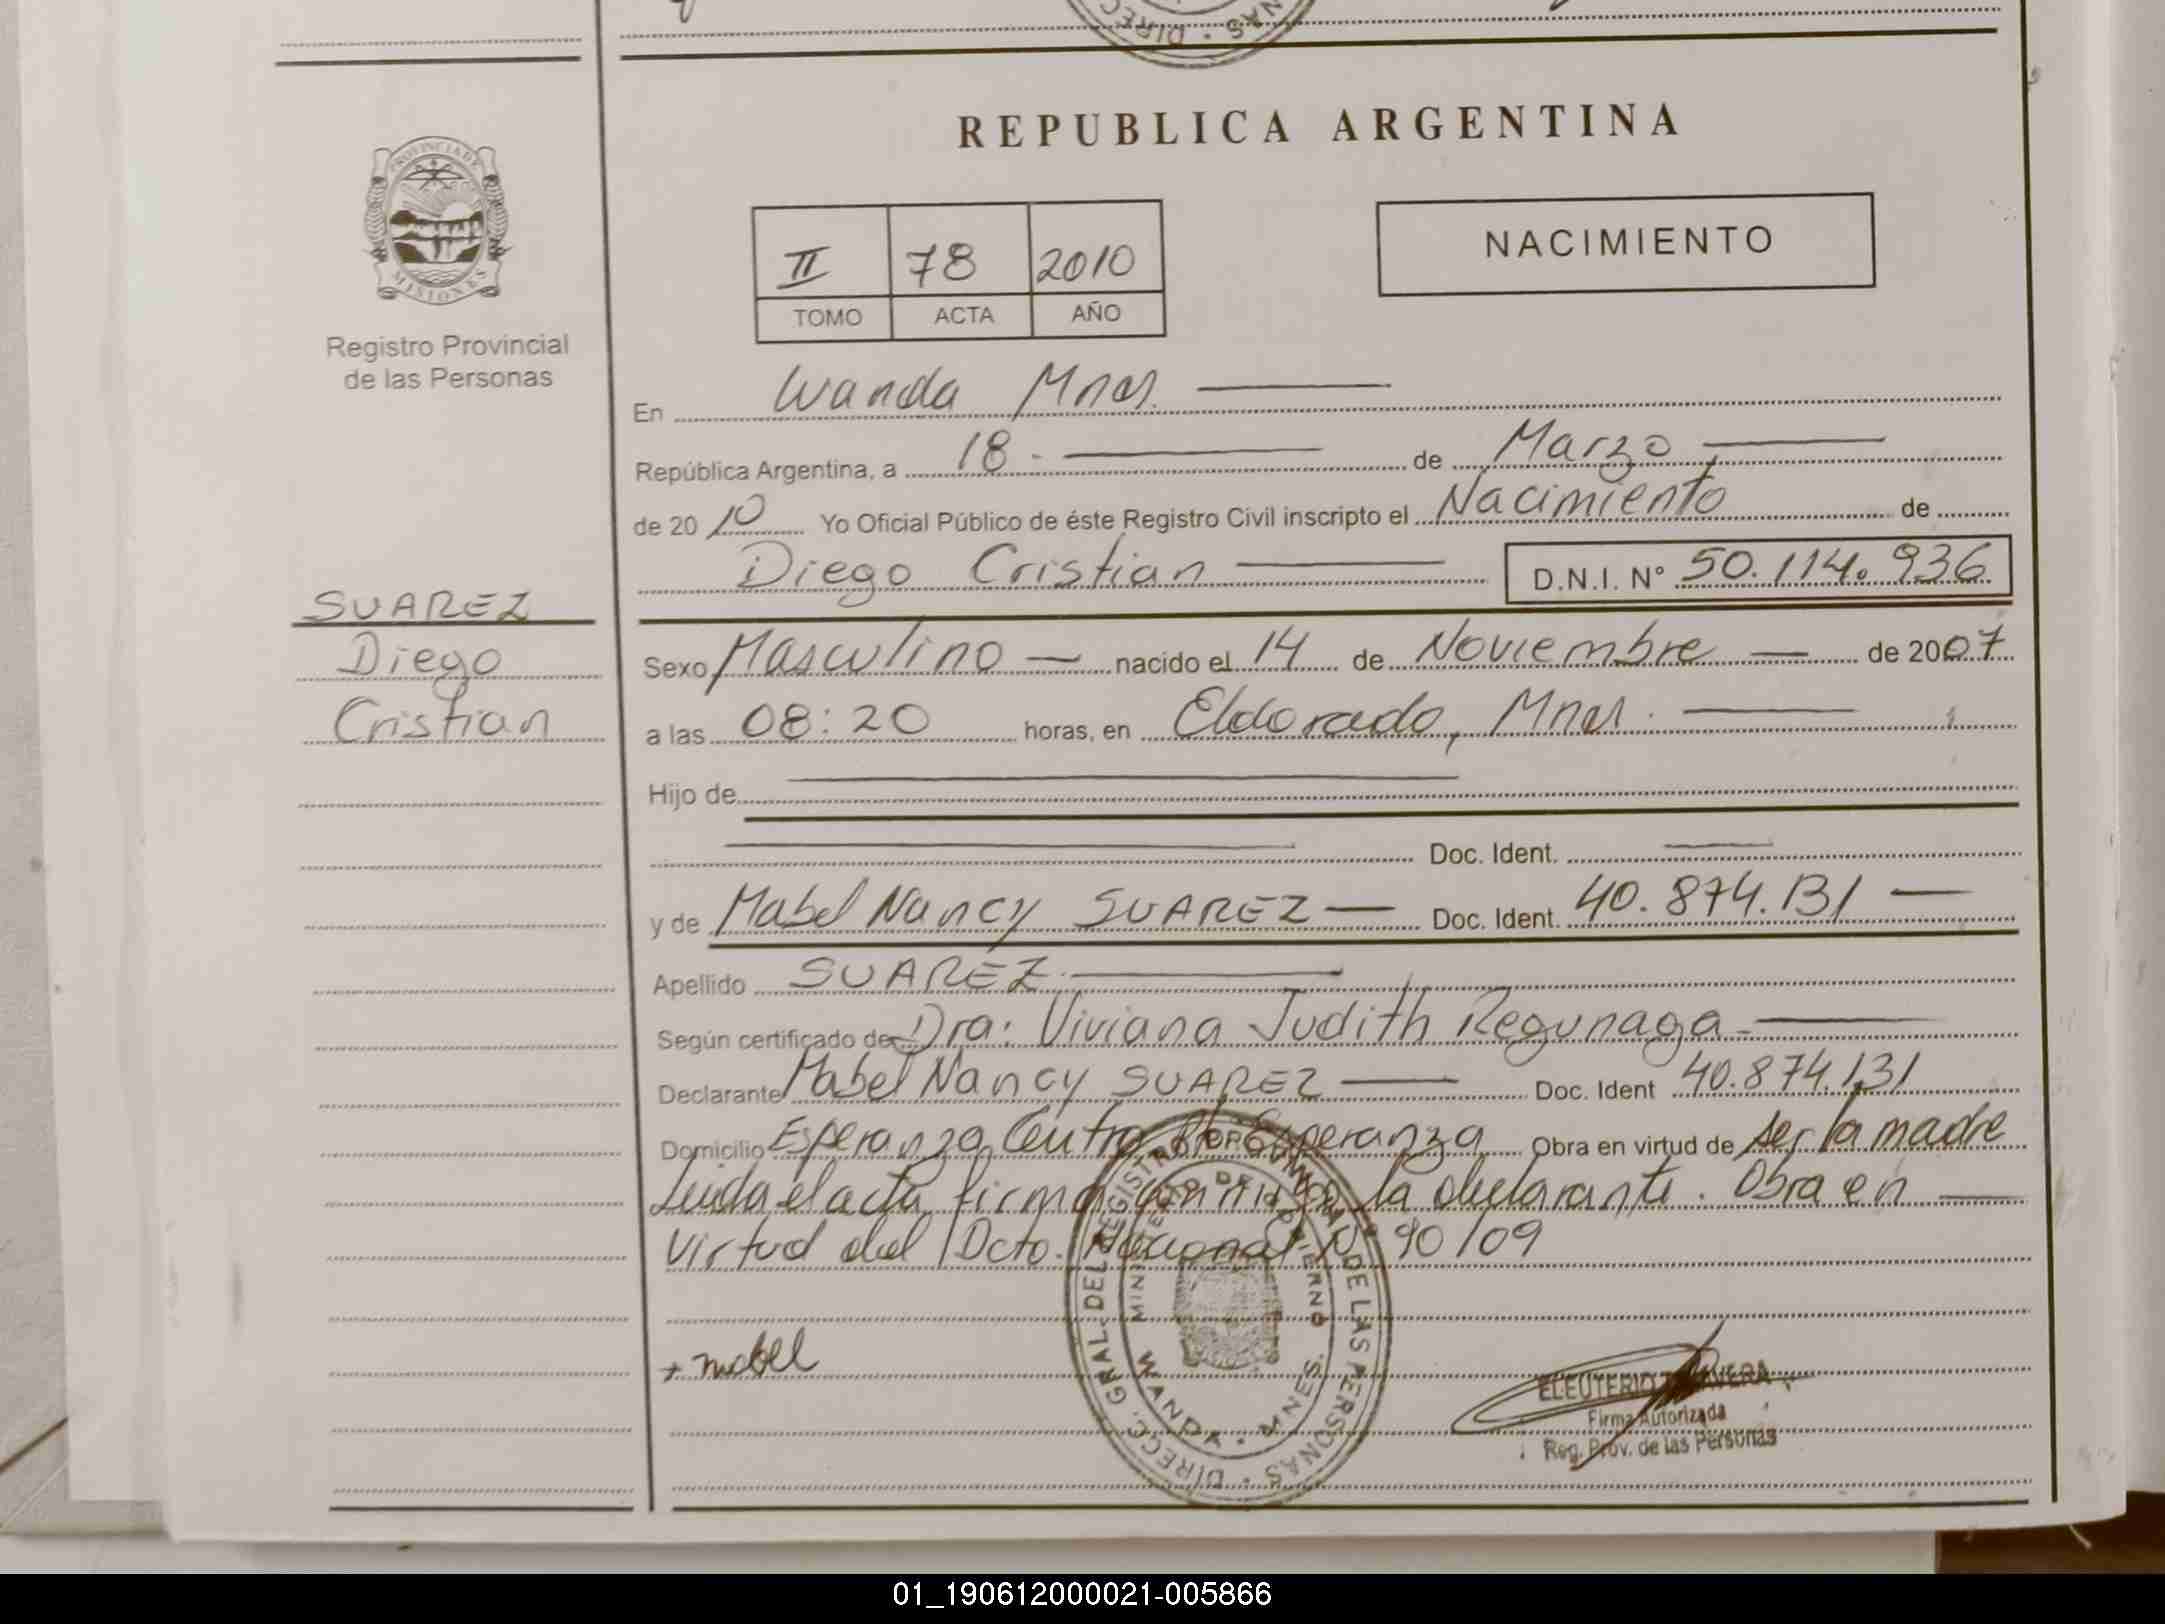 REPUBLICA ARGENTINA
PROVINCIA DE
MISIONES
Registro Provincial
de las Personas
II 78 2010
TOMO ACTA AÑO
NACIMIENTO
En Wanda Mnes.
República Argentina, a 18 - de Marzo
de 2010 Yo Oficial Público de éste Registro Civil inscripto el Nacimiento de
Diego Cristian D.N.I. N° 50.114.936
SUAREZ
Diego
Cristian
Sexo Masculino nacido el 14 de Noviembre de 2007
a las 08:20 horas, en Eldorado, Mnes.
Hijo de
Doc. Ident.
y de Mabel Nancy SUAREZ Doc. Ident. 40.874.131
Apellido SUAREZ
Según certificado de Dra: Viviana Judith Regunaga
Declarante Mabel Nancy SUAREZ Doc. Ident 40.874.131
Domicilio Esperanza Centro Pto Esperanza Obra en virtud de ser la madre
Leida el acta firma conmigo la declarante. Obra en
virtud del Dcto. Nacional N° 90/09
DIRECC. GRAL. DEL REGISTRO PROVINCIAL DE LAS PERSONAS
MINISTERIO DE GOBIERNO
WANDA - MNES.
+ mabel
ELEUTERIO
Firma Autorizada
Reg. Prov. de las Personas
01_190612000021-005866